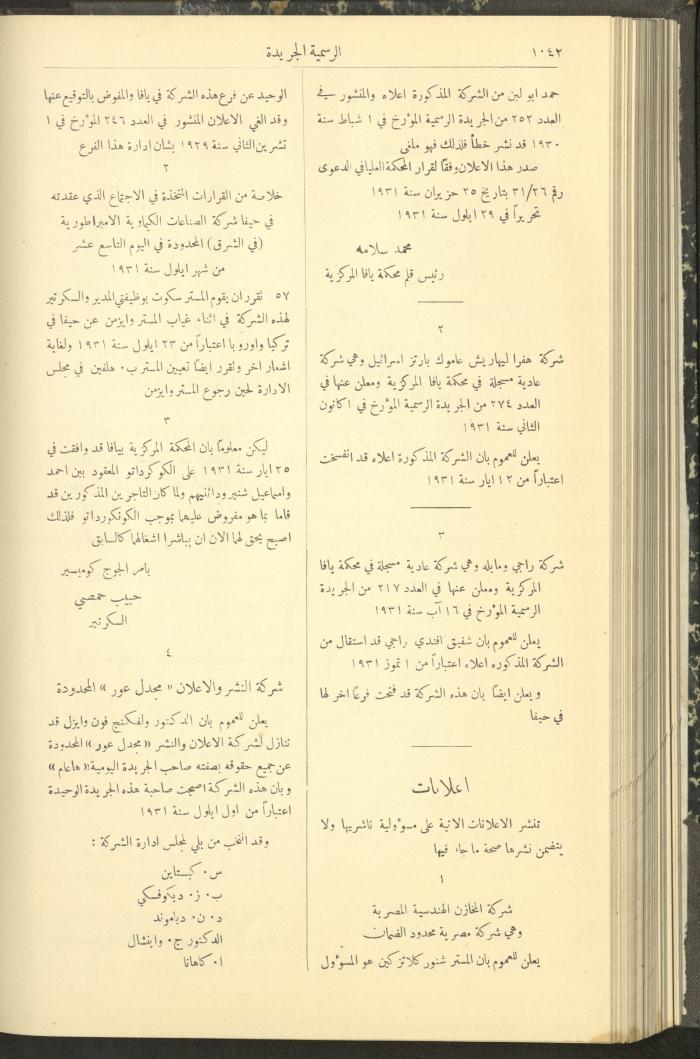 ١٠٤٢
الرسمية الجريدة
حمد ابو لبن من الشركة المذكورة اعلاه والمنشور في
العدد ٢٥٢ من الجريدة الرسمية المؤرخ في ١ شباط سنة
١٩٣٠ قد نشر خطأ فلذلك فهو ملغى
صدر هذا الاعلان وفقاً لقرار المحكمة العليا في الدعوى
رقم ٣١/٢٦ بتاريخ ٢٥ حزيران سنة ١٩٣١
تحريراً في ٢٩ ايلول سنة ١٩٣١
محمد سلامه
رئيس قلم محكمة يافا المركزية
٢
شركة هفرا ليهاريش عاموك بارتز اسرائيل وهي شركة
عادية مسجلة في محكمة يافا المركزية ومعلن عنها في
العدد ٢٧٤ من الجريدة الرسمية المؤرخ في ١ كانون
الثاني سنة ١٩٣١
يعلن للعموم بان الشركة المذكورة اعلاه قد انفسخت
اعتباراً من ١٢ ايار سنة ١٩٣١
٣
شركة راجي ومابله وهي شركة عادية مسجلة في محكمة يافا
المركزية ومعلن عنها في العدد ٢١٧ من الجريدة
الرسمية المؤرخ في ١٦ آب سنة ١٩٣١
يعلن للعموم بان شفيق افندي راجي قد استقال من
الشركة المذكوره اعلاه اعتباراً من ١ تموز ١٩٣١
ويعلن ايضاً بان هذه الشركة قد فتحت فرعاً اخر لها
في حيفا
اعلانات
تنشر الاعلانات الاتية على مسؤولية ناشريها ولا
يتضمن نشرها صحة ما جاء فيها
١
شركة المخازن الهندسية المصرية
وهي شركة مصرية محدود الضمان
يعلن للعموم بان المستر شنور كلاتزكين هو المسؤول
الوحيد عن فرع هذه الشركة في يافا والمفوض بالتوقيع عنها
وقد الغي الاعلان المنشور في العدد ٢٤٦ المؤرخ في ١
تشرين الثاني سنة ١٩٢٩ بشان ادارة هذا الفرع
٢
خلاصة من القرارات المتخذة في الاجتماع الذي عقدته
في حيفا شركة الصناعات الكيماوية الامبراطورية
(في الشرق) المحدودة في اليوم التاسع عشر
من شهر ايلول سنة ١٩٣١
٥٧ تقرر ان يقوم المستر سكوت بوظيفتي المدير والسكرتير
لهذه الشركة في اثناء غياب المستر وايزمن عن حيفا في
تركيا واوروبا اعتباراً من ٢٣ ايلول سنة ١٩٣١ ولغاية
اشعار اخر وتقرر ايضاً تعيين المستر ب. هلفين في مجلس
الادارة لحين رجوع المستر وايزمن
٣
ليكن معلوماً بان المحكمة المركزية بيافا قد وافقت في
٢٥ ايار سنة ١٩٣١ على الكوكرداتو المعقود بين احمد
واسماعيل شنير ودائنيهم ولما كان التاجرين المذكورين قد
قاما بما هو مفروض عليهما بموجب الكونكورداتو فلذلك
اصبح يحق لهما الان ان يباشرا اشغالهما كالسابق
بامر الجوج كوميسير
حبيب حمصي
السكرتير
٤
شركة النشر والاعلان « مجدل عور » المحدودة
يعلن للعموم بان الدكتور ولفكنج فون وايزل قد
تنازل لشركة الاعلان والنشر « مجدل عور » المحدودة
عن جميع حقوقه بصفته صاحب الجريدة اليومية « هاعام »
وبان هذه الشركة اصبحت صاحبة هذه الجريدة الوحيدة
اعتباراً من اول ايلول سنة ١٩٣١
وقد انتخب من يلي لمجلس ادارة الشركة :
س. كبستاين
ب. ز. ديكوفسكي
د. ن. دياموند
الدكتور ج. واينشال
ا. كاهانا